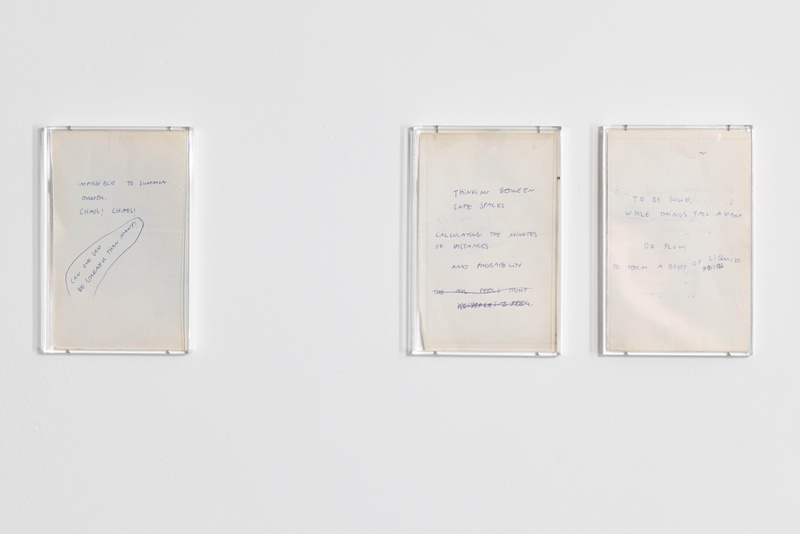 IMPOSSIBLE TO SUMMON
CHAOS! CHAOS!
CAN ONE GOD
BE GREATER THAN MANY?
THINKING BETWEEN
SAFE SPACES
CALCULATING THE MINUTES
OR DISTANCES
AND
THE FEELS
TO BE SOLID,
WHILE THINGS FALL APART
OR FLOW,
TO FORM A BODY OF LIQUID